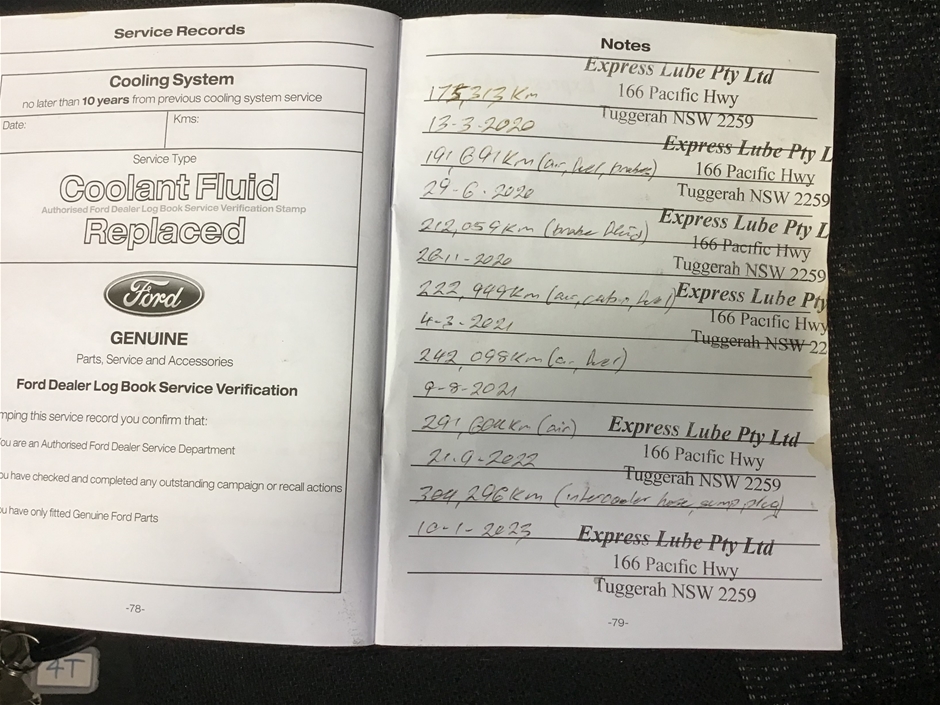 Service Records
Cooling System
no later than 10 years from previous cooling system service
Date:
Kms:
Service Type
Coolant Fluid
Authorised Ford Dealer Log Book Service Verification Stamp
Replaced
Ford
GENUINE
Parts, Service and Accessories
Ford Dealer Log Book Service Verification
mping this service record you confirm that:
ou are an Authorised Ford Dealer Service Department
ou have checked and completed any outstanding campaign or recall actions
ou have only fitted Genuine Ford Parts
-78-
Notes
Express Lube Pty Ltd
175,313 Km
166 Pacific Hwy
13-3-2020
Tuggerah NSW 2259
Express Lube Pty L
191,691Km (air, fuel,
166 Pacific Hwy
29-6-2020
Tuggerah NSW 2259
Express Lube Pty L
212,059Km (brake fluid)
166 Pacific Hwy
-11-2020
Tuggerah NSW 2259
222,949Km (air, cabin, fuel)
Express Lube Pty
4-3-2021
166 Pacific Hwy
Tuggerah NSW 22
242,098Km (air, fuel)
9-8-2021
291,604Km (air)
Express Lube Pty Ltd
166 Pacific Hwy
21-9-2022
Tuggerah NSW 2259
304,296Km (intercooler hose, sump plug)
10-1-2023
Express Lube Pty Ltd
166 Pacific Hwy
Tuggerah NSW 2259
-79-
4T